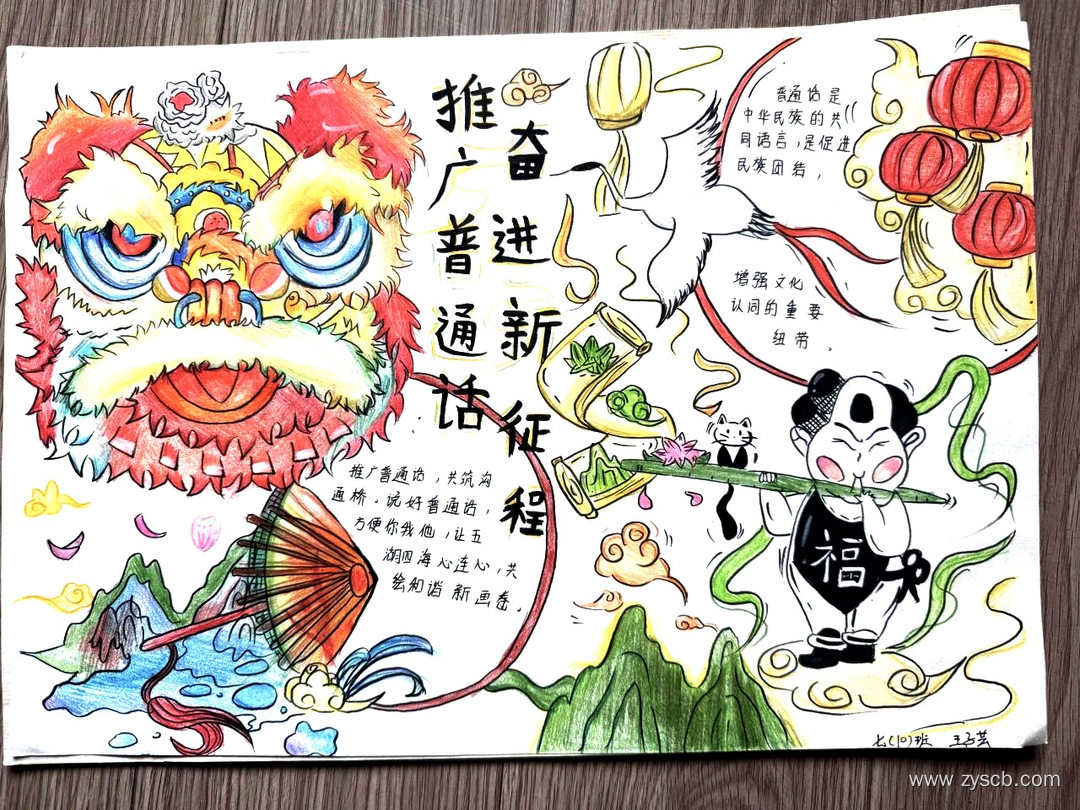 推广普通话
奋进新征程
普通话是
中华民族的共
同语言，是促进
民族团结，
增强文化
认同的重要
纽带。
推广普通话，共筑沟
通桥。说好普通话，
方便你我他，让五
湖四海心连心，共
绘和谐新画卷。
福
七(10)班 王子芸
www.zyscb.com